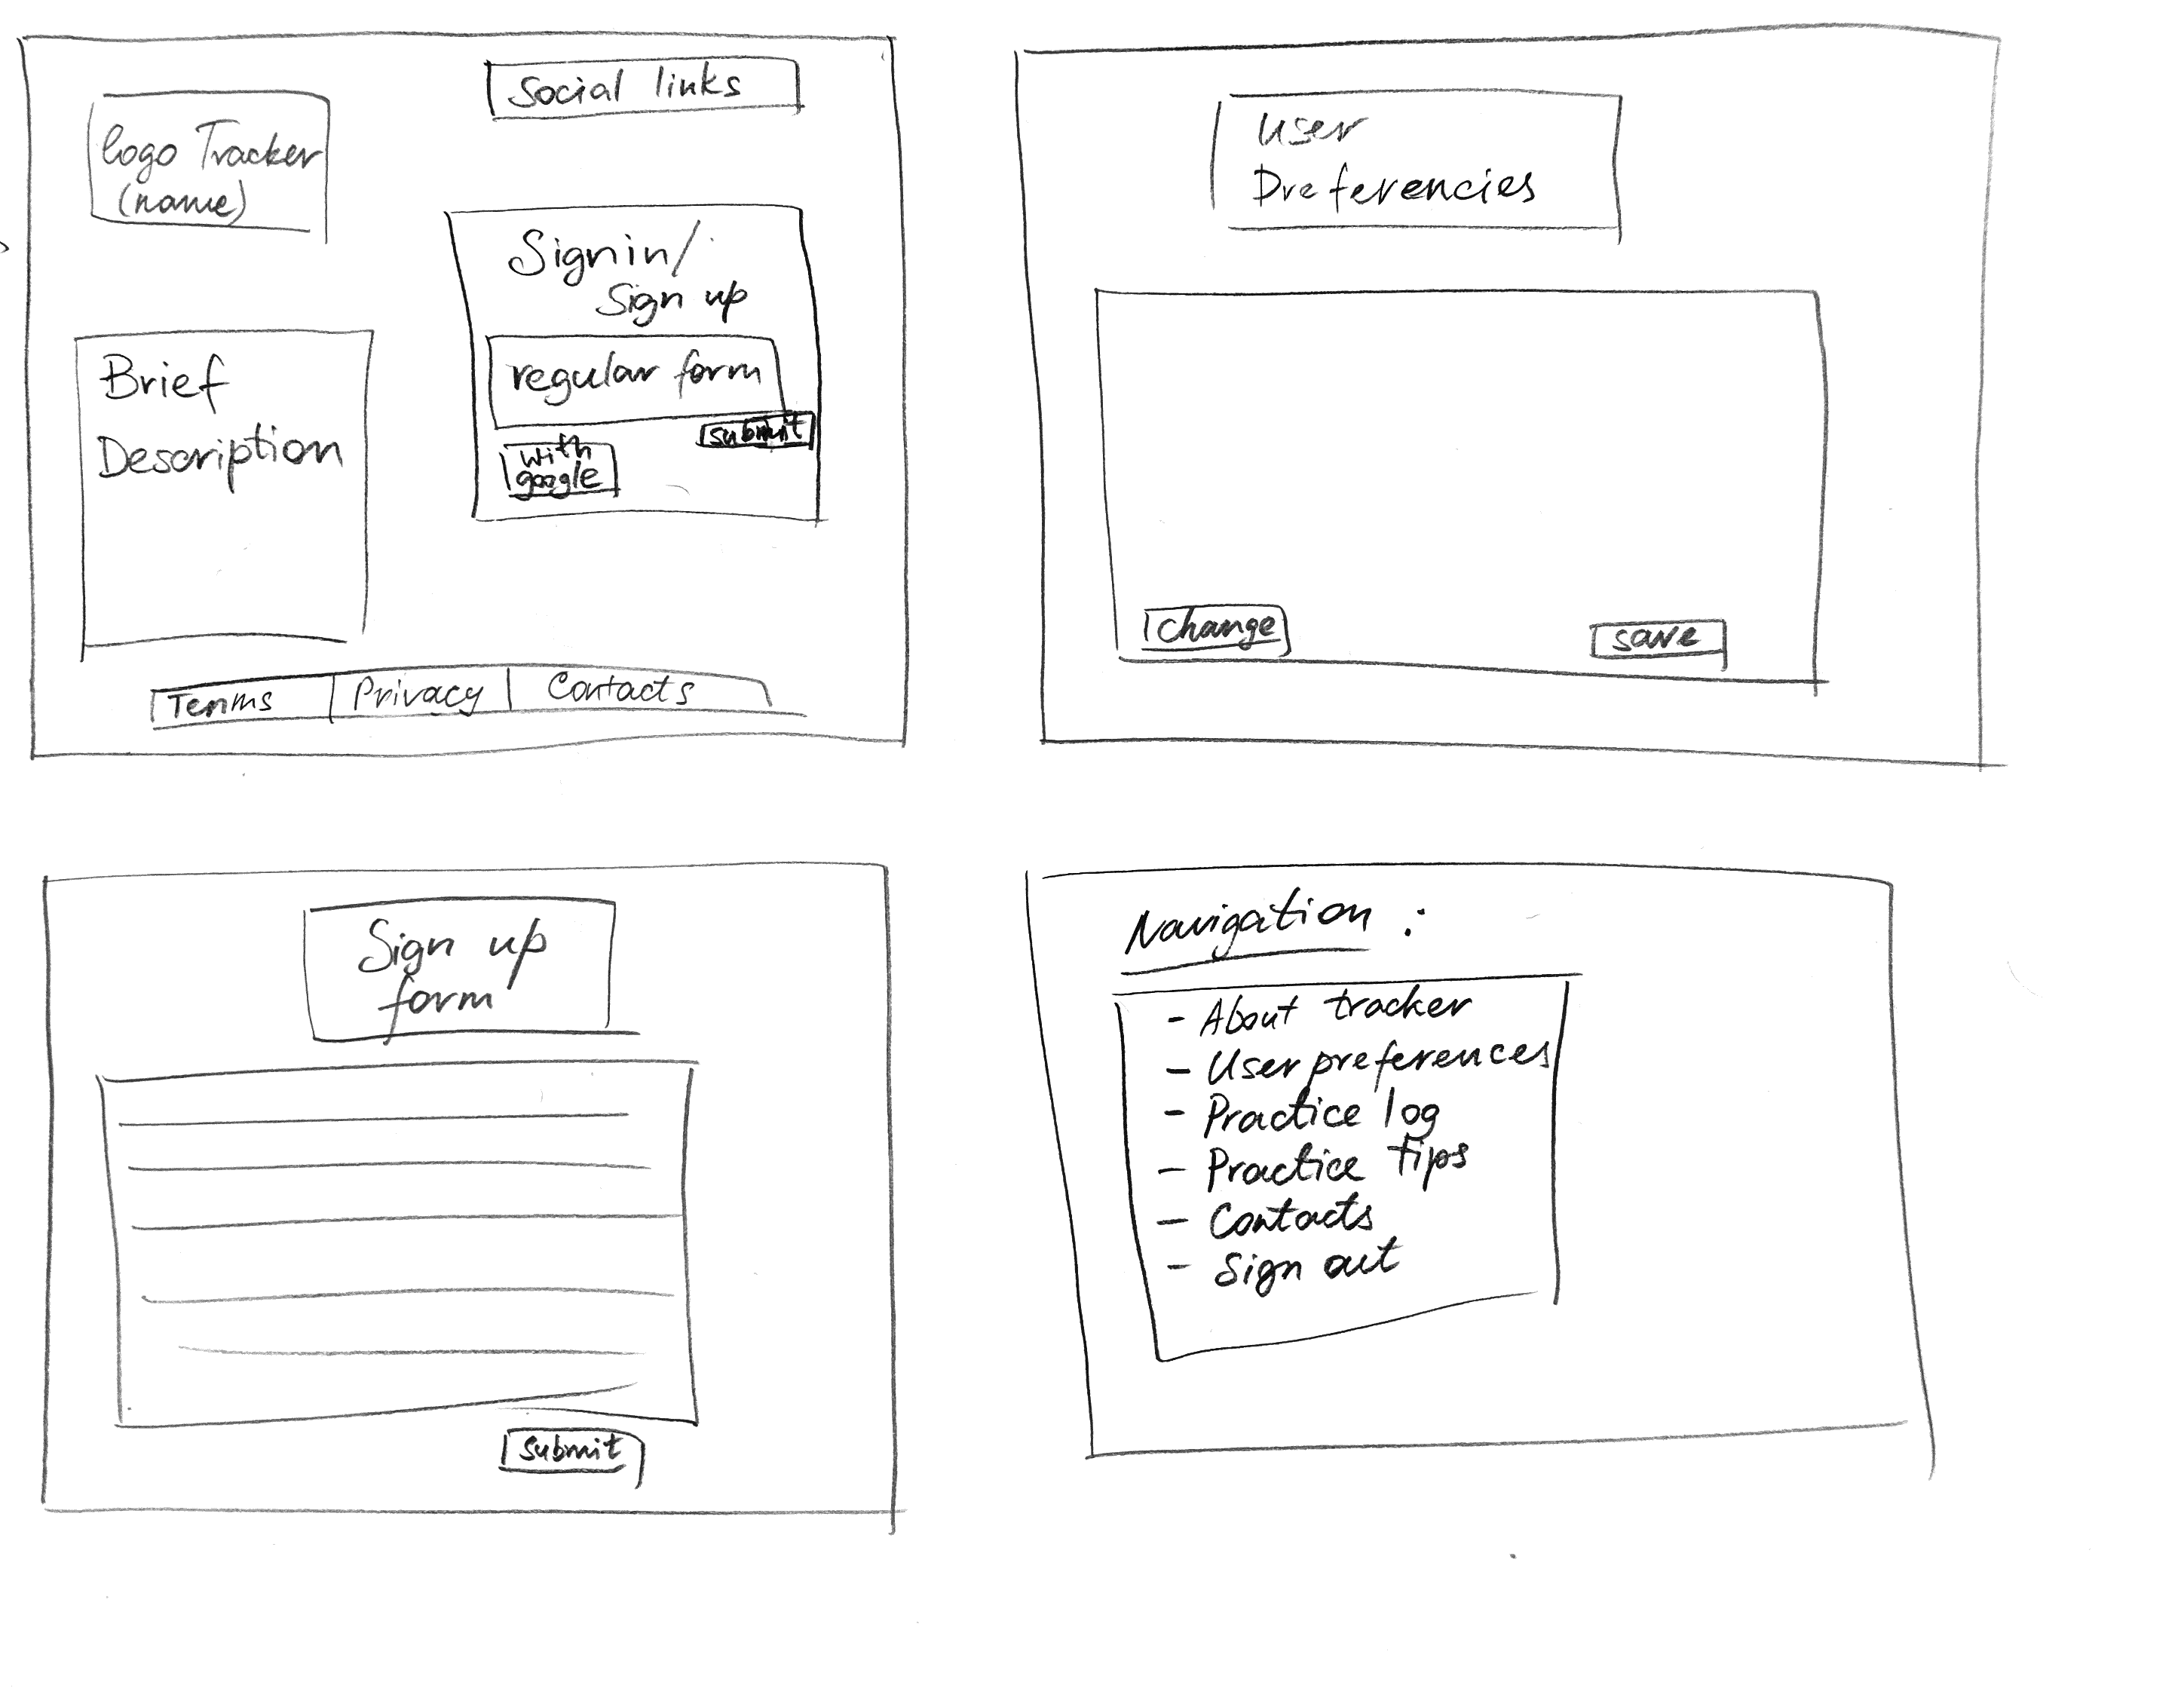 Social links
logo Tracker
(name)
Signin/
Sign up
regular form
submit
with
google
Brief
Description
Terms
Privacy
Contacts
User
Preferencies
change
save
Sign up
form
submit
Navigation :
- About tracker
- User preferences
- Practice log
- Practice tips
- Contacts
- Sign out